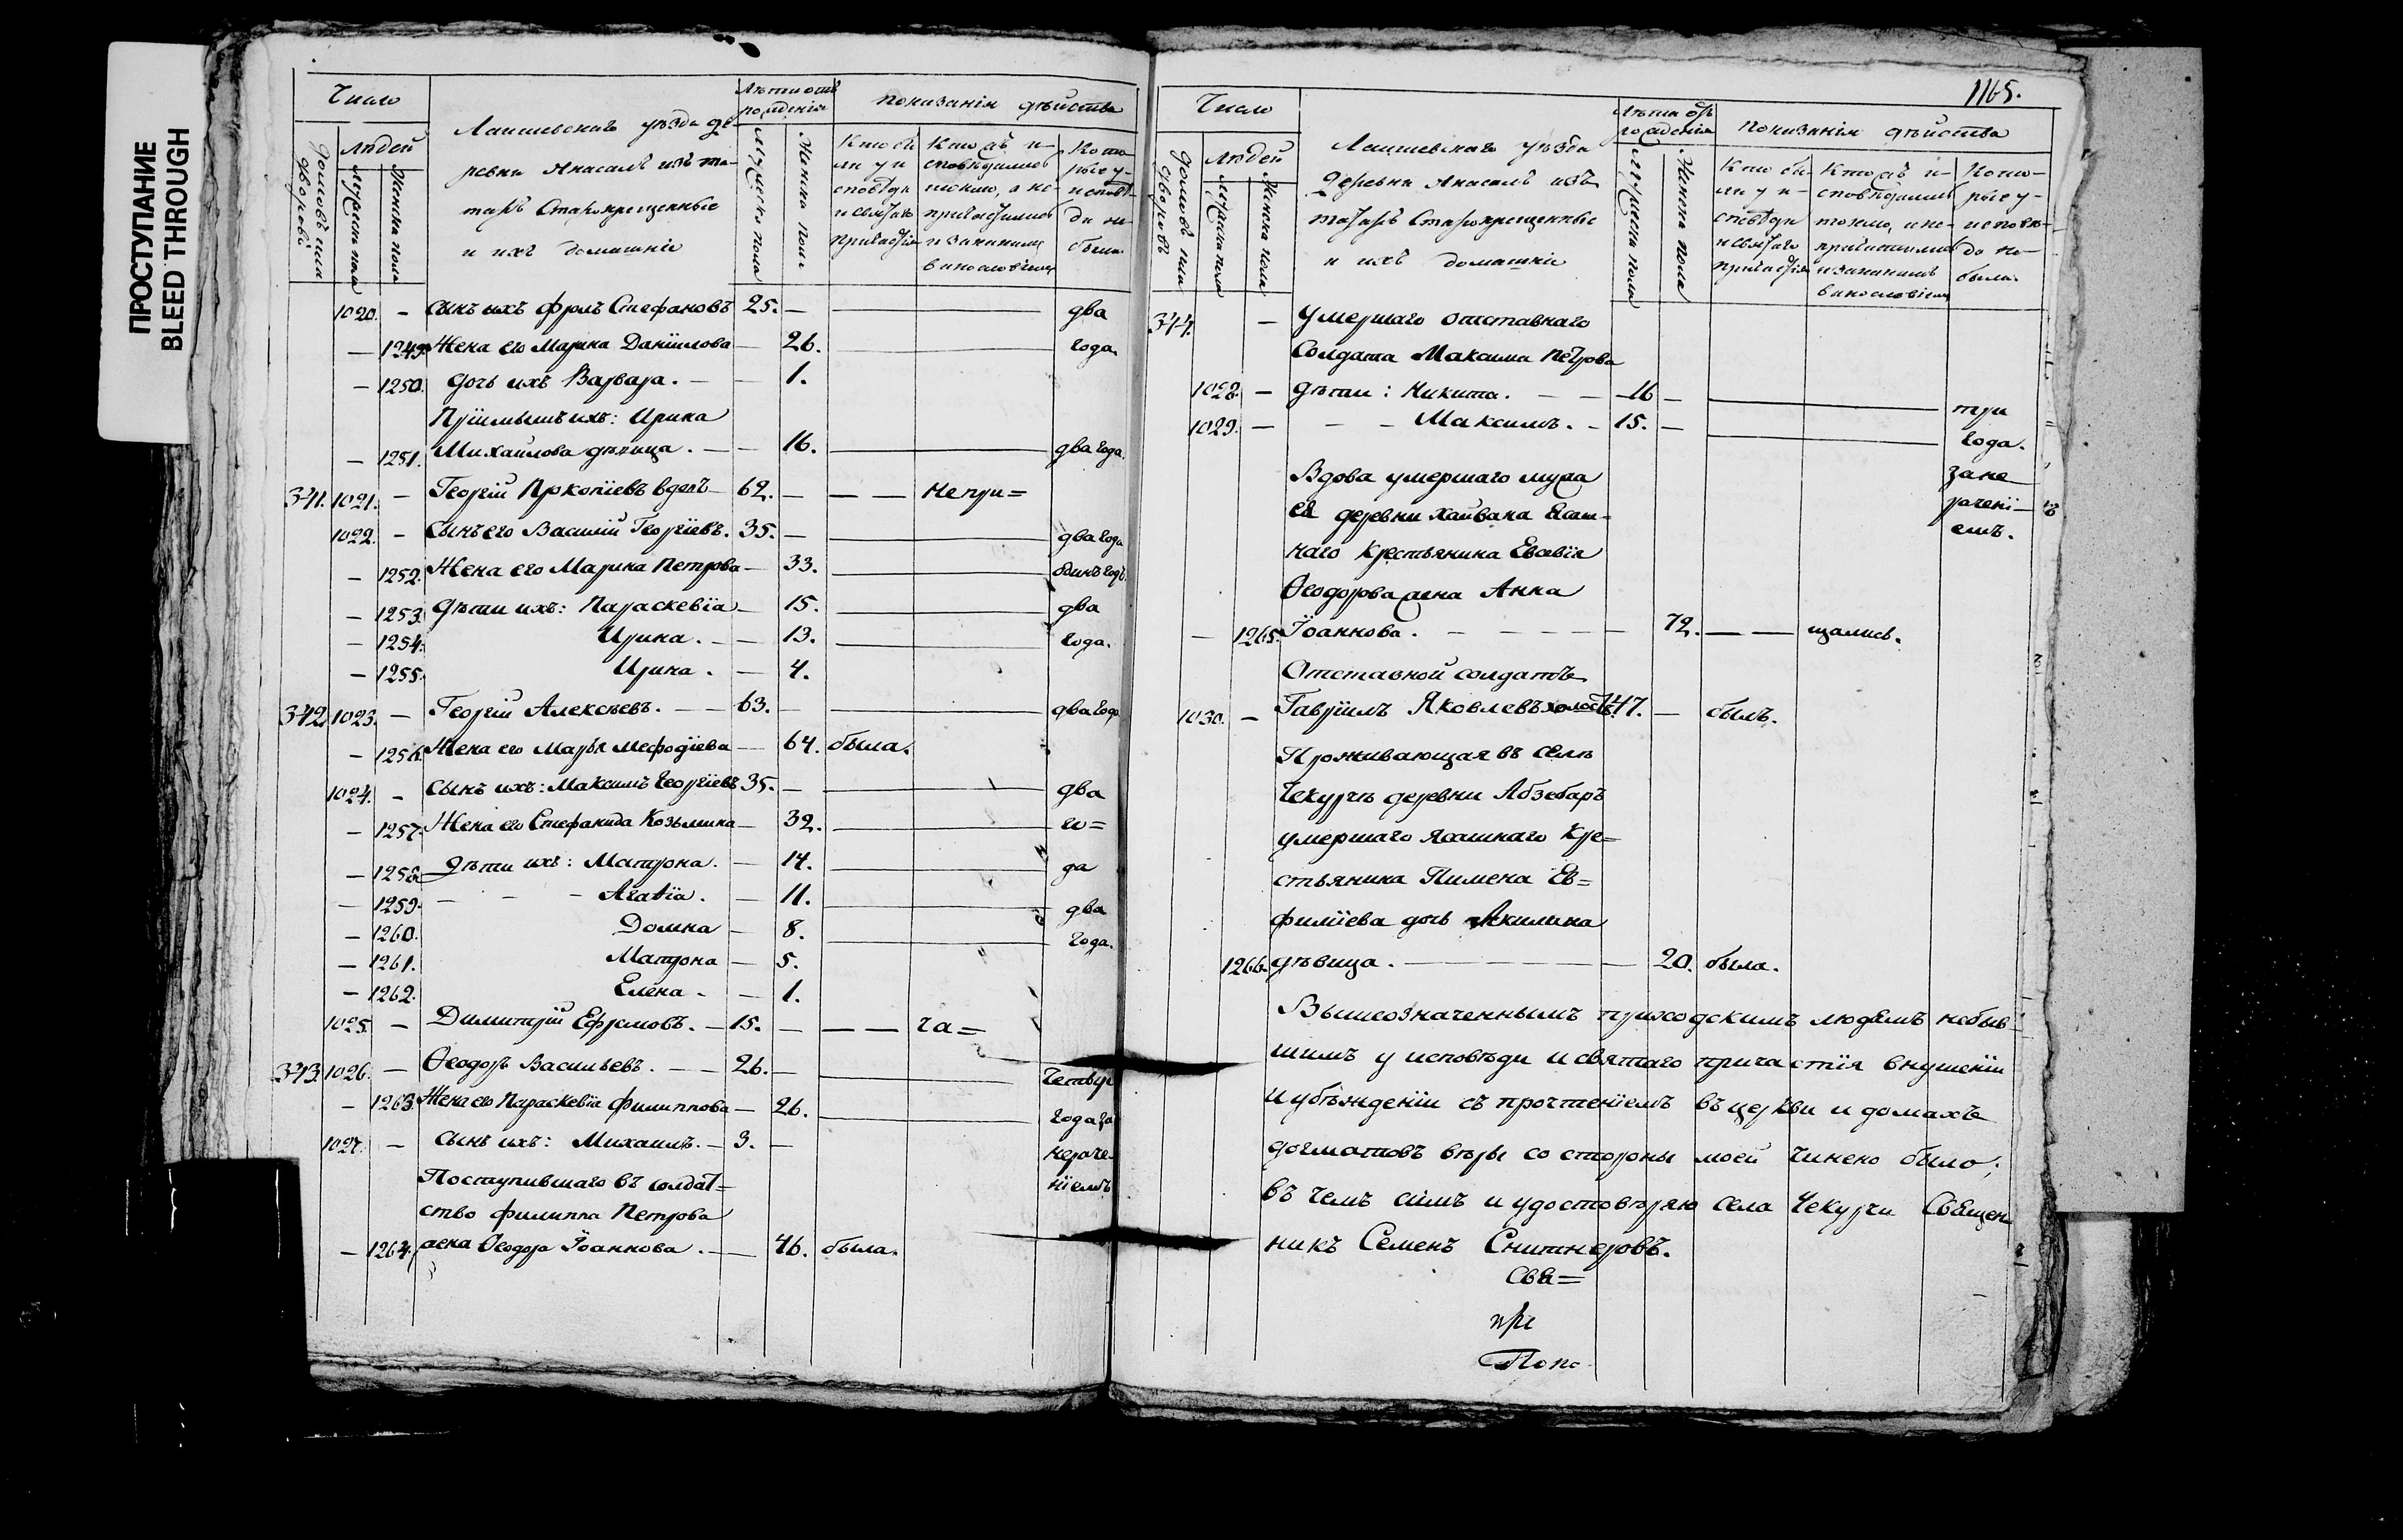 ПРОСТУПАНИЕ
BLEED THROUGH
Число
Людей
Домовъ или дворовъ
Мужеска пола
Женска пола
Лаишевскаго уѣзда де-
ревни Янасалъ изъ та-
таръ Старокрещенные
и ихъ домашніе
Лѣта отъ рожденія
Мужеска пола
Женска пола
Показанія дѣйства
Кто бы-
ли у и-
сповѣди
и святаго
причастія
Кто жъ и-
сповѣдался
токмо, а не-
причастился
и за каким
винословіем
Кото-
рые у
исповѣ-
ди не
были
1020. – Сынъ ихъ Фролъ Стефановъ 25. – два
– 1249. Жена его Марина Даніилова – 26. года.
– 1250. Дочь ихъ Варвара. – – 1.
Пріимышъ ихъ: Ирина
– 1251. Михайлова дѣвица. – – 16. два года.
341. 1021. – Георгій Прокопіевъ вдовъ – 62. – – – Непри=
1022. – Сынъ его Василій Георгіевъ. 35. – два года
– 1252. Жена его Марина Петрова – 33. одинъ годъ.
– 1253. Дѣти ихъ: Параскевія – 15. два
– 1254. Ирина. – – 13. года.
– 1255. Ирина. – – 4.
342. 1023. – Георгій Алексѣевъ. – – 63. – два года
– 1256. Жена его Марья Мефодіева – 64. была.
1024. – Сынъ ихъ: Максимъ Георгіевъ 35. – два
– 1257. Жена его Стефанида Козьмина – 32. го=
– 1258. Дѣти ихъ: Матрона. – 14. да
– 1259. – – – Агаѳія. – 11. два
– 1260. Домна – 8. года.
– 1261. Матрона – 5.
– 1262. Елена. – – 1.
1025. – Димитрій Ефремовъ. – 15. – – – ча=
343. 1026. – Ѳеодоръ Васильевъ. – – 26. – Четыре
– 1263. Жена его Параскевія Филиппова – 26. года за
1027. – Сынъ ихъ: Михаилъ. – 3. – нераче-
Поступившаго въ солдат= ніемъ
ство Филиппа Петрова
– 1264. жена Ѳеодора Іоаннова. – – 46. была.
1165.
Число
Людей
Домовъ или дворовъ
Мужеска пола
Женска пола
Лаишевскаго уѣзда
Деревни Янасалъ изъ
татаръ Старокрещенные
и ихъ домашніе
Лѣта отъ рожденія
Мужеска пола
Женска пола
Показанія дѣйства
Кто бы-
ли у и-
сповѣди
и святаго
причастія
Кто жъ и-
сповѣдался
токмо, а не-
причастился
и за какимъ
винословіем
Кото-
рые у-
исповѣ-
ди не-
были.
344. – Умершаго отставнаго
Солдата Максима Петрова
1028. – дѣти: Никита. – – 16 – три
1029. – – – Максимъ. – 15. – года.
Вдова умершаго мужа зане
ея деревни Хайвана Ясаш= рачені–
наго Крестьянина Евсевія емъ.
Ѳеодорова жена Анна
– 1265. Іоаннова. – – – – – 72. – – щались.
Отставной солдатъ
1030. – Гавріилъ Яковлевъ холостъ 47. – былъ.
Проживающая въ селѣ
Чекурчѣ деревни Абзебаръ
умершаго Ясашнаго Кре=
стьянина Пимена Ев=
филіева дочь Акилина
1266. дѣвица. – 20. была.
Вышеозначеннымъ приходскимъ людямъ небыв-
шимъ у исповѣди и святаго причастія внушеніи
и убѣжденіи съ прочтеніемъ въ церкви и домахъ
догматовъ вѣры со стороны моей чинено было,
въ чемъ симъ и удостовѣряю села Чекурчи Священ
никъ Семенъ Снитнеровъ.
Свя=
при
Попо